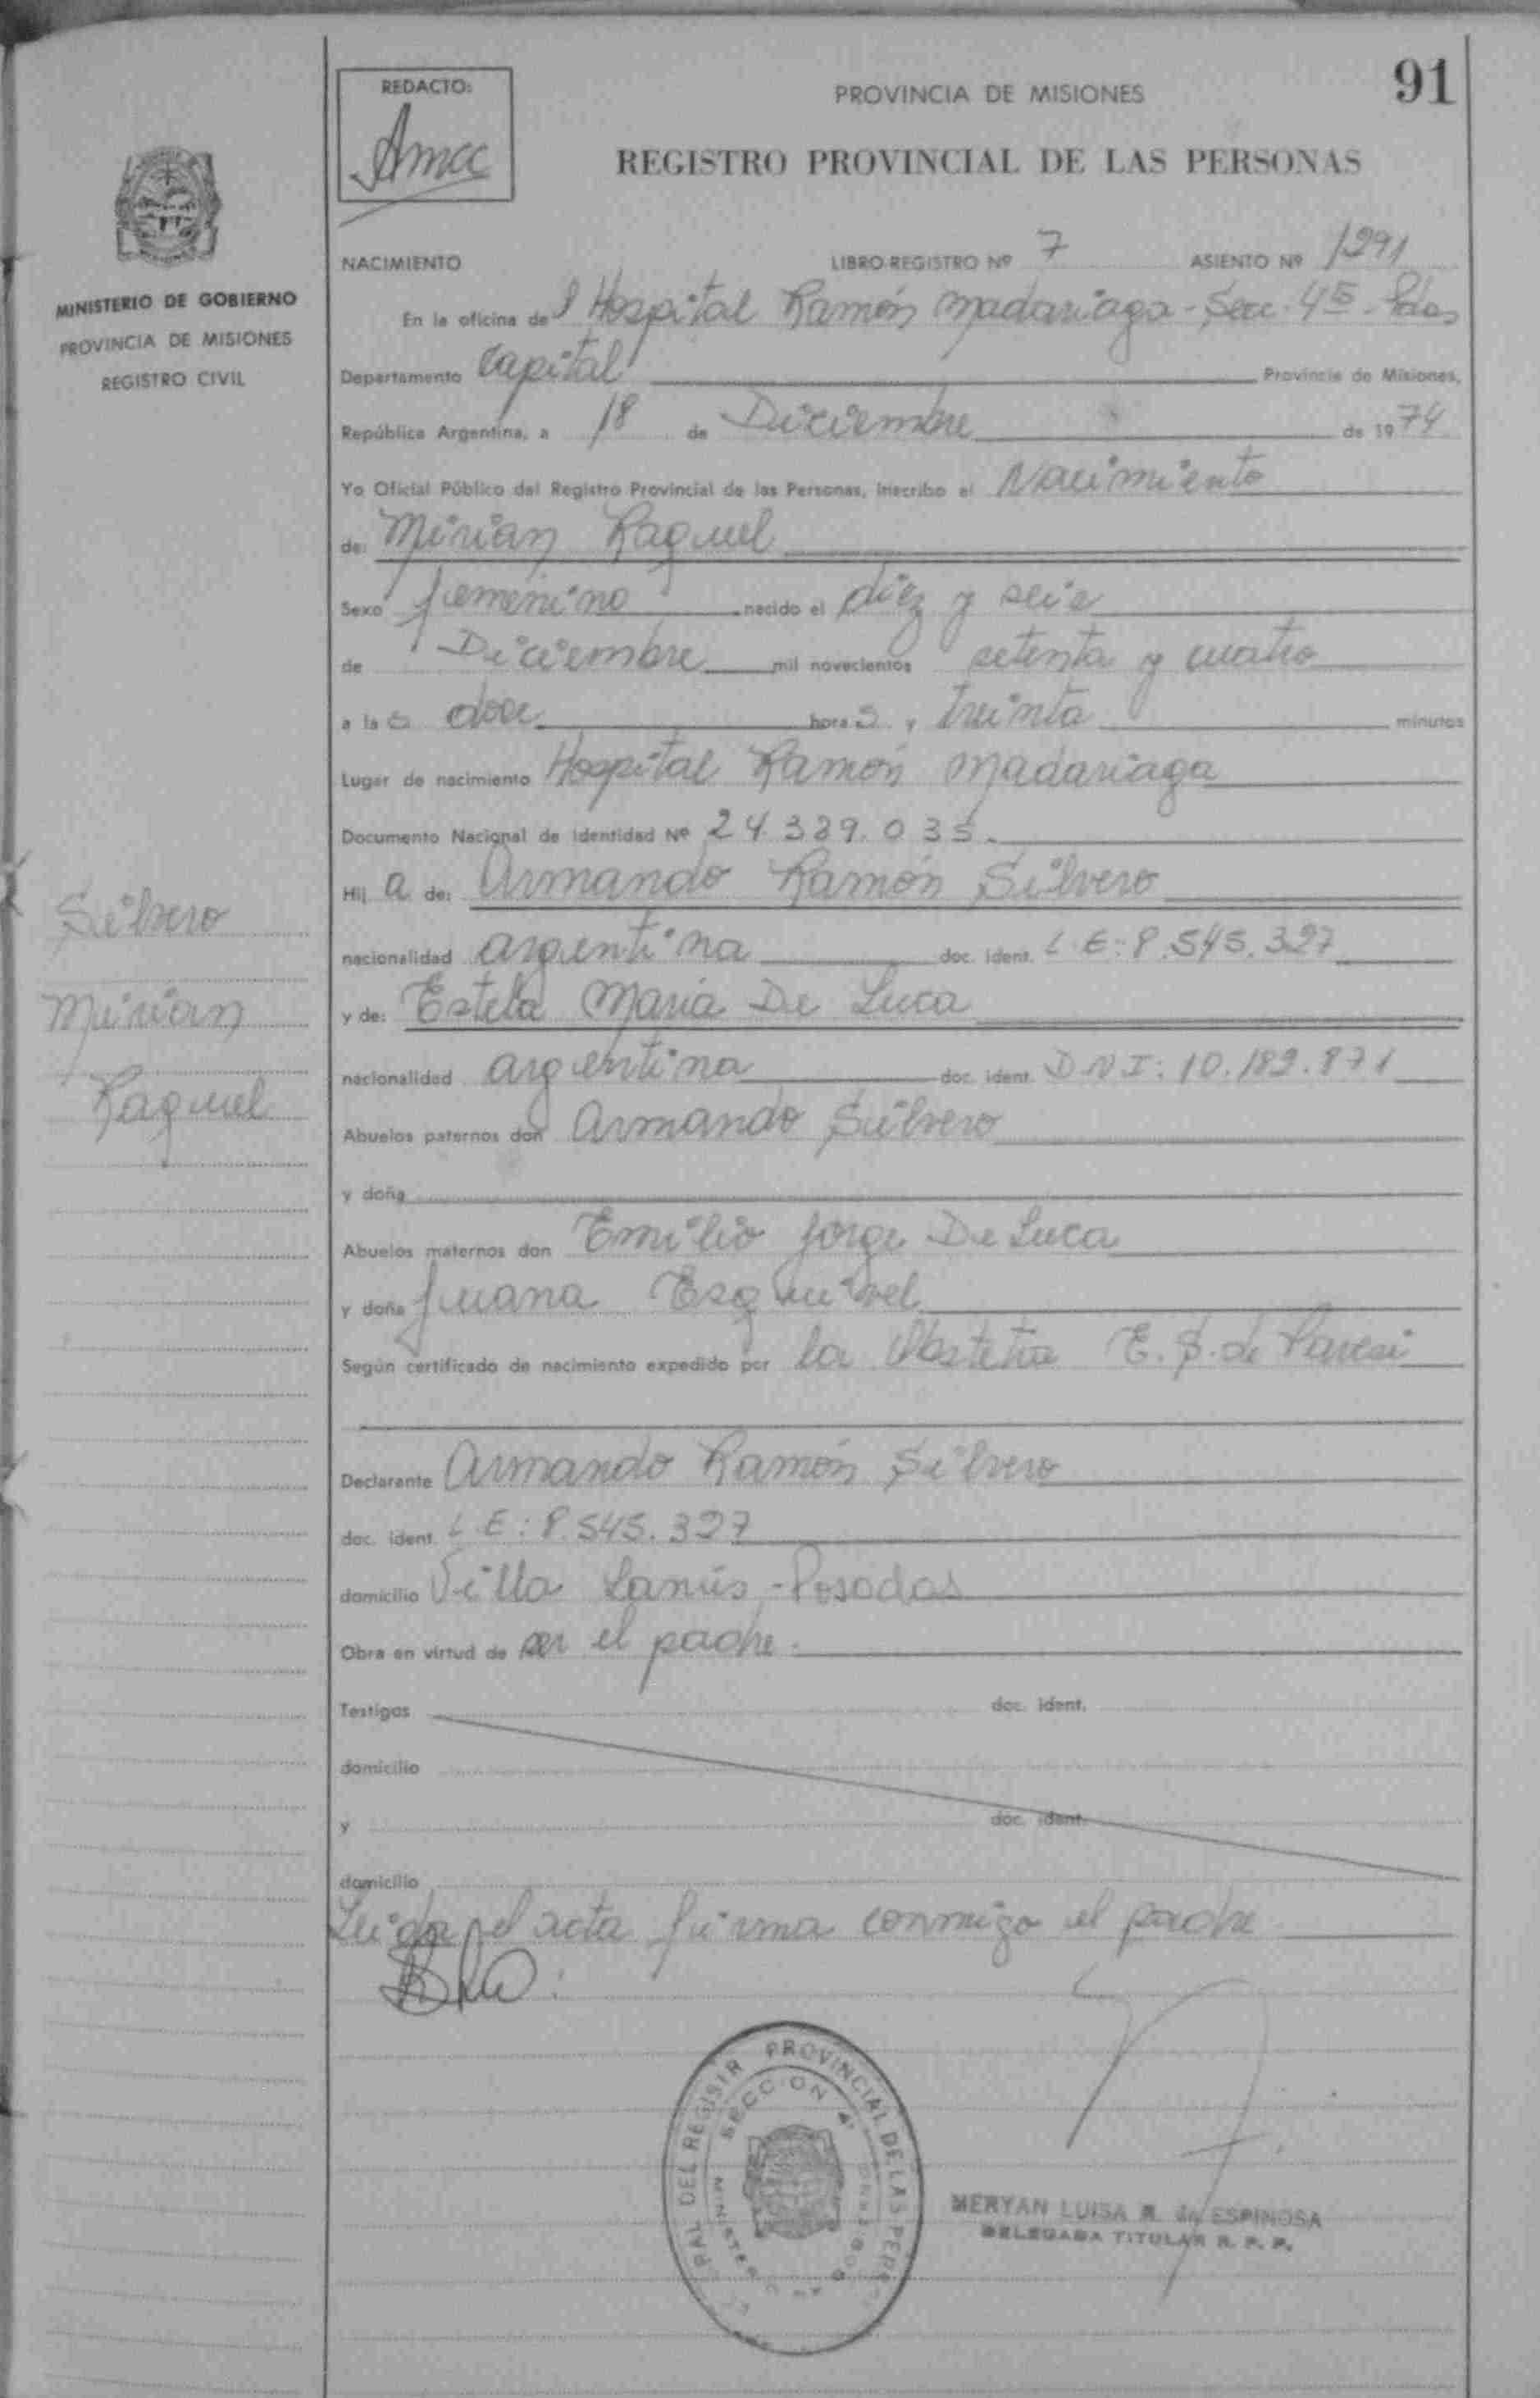 91
REDACTO:
PROVINCIA DE MISIONES
REGISTRO PROVINCIAL DE LAS PERSONAS
MINISTERIO DE GOBIERNO
PROVINCIA DE MISIONES
REGISTRO CIVIL
NACIMIENTO LIBRO-REGISTRO Nº 7 ASIENTO Nº 1291
En la oficina del Hospital Ramón Madariaga - Secc. 4 - Pdas
Departamento Capital Provincia de Misiones,
República Argentina, a 18 de Diciembre de 1974
Yo Oficial Público del Registro Provincial de las Personas, inscribo el Nacimiento
de: Mirian Raquel
Sexo femenino nacido el diez y seis
de Diciembre mil novecientos setenta y cuatro
a las doce horas y treinta minutos
Lugar de nacimiento Hospital Ramón Madariaga
Documento Nacional de Identidad Nº 24.389.035.
Hija de: Armando Ramón Silvero
nacionalidad argentina doc. ident. L.E: 8.545.327
y de: Estela Maria De Luca
nacionalidad argentina doc. ident. D.N.I: 10.189.871
Abuelos paternos don Armando Silvero
y doña
Abuelos maternos don Emilio Jorge De Luca
y doña Juana Esquivel
Según certificado de nacimiento expedido por la Obstetra E. S. de Paresi
Declarante Armando Ramón Silvero
doc. ident. L.E: 8.545.327
domicilio Villa Lanús - Posadas
Obra en virtud de ser el padre.
Testigos doc. ident.
domicilio
y doc. ident.
domicilio
Leida el acta firma conmigo el padre
Silvero
Mirian
Raquel
REGISTR PROVINCIAL DE LAS PERS
SECCION 4ª
MERYAN LUISA R. de ESPINOSA
DELEGADA TITULAR R. P. P.